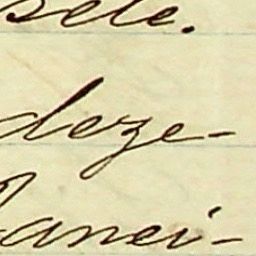 sete.
deze-
Janei-